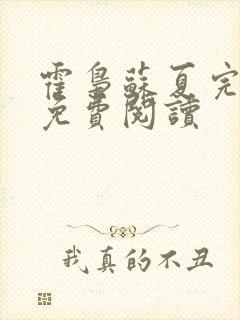 霍梟蘇夏完
免費閱讀
我真的不丑